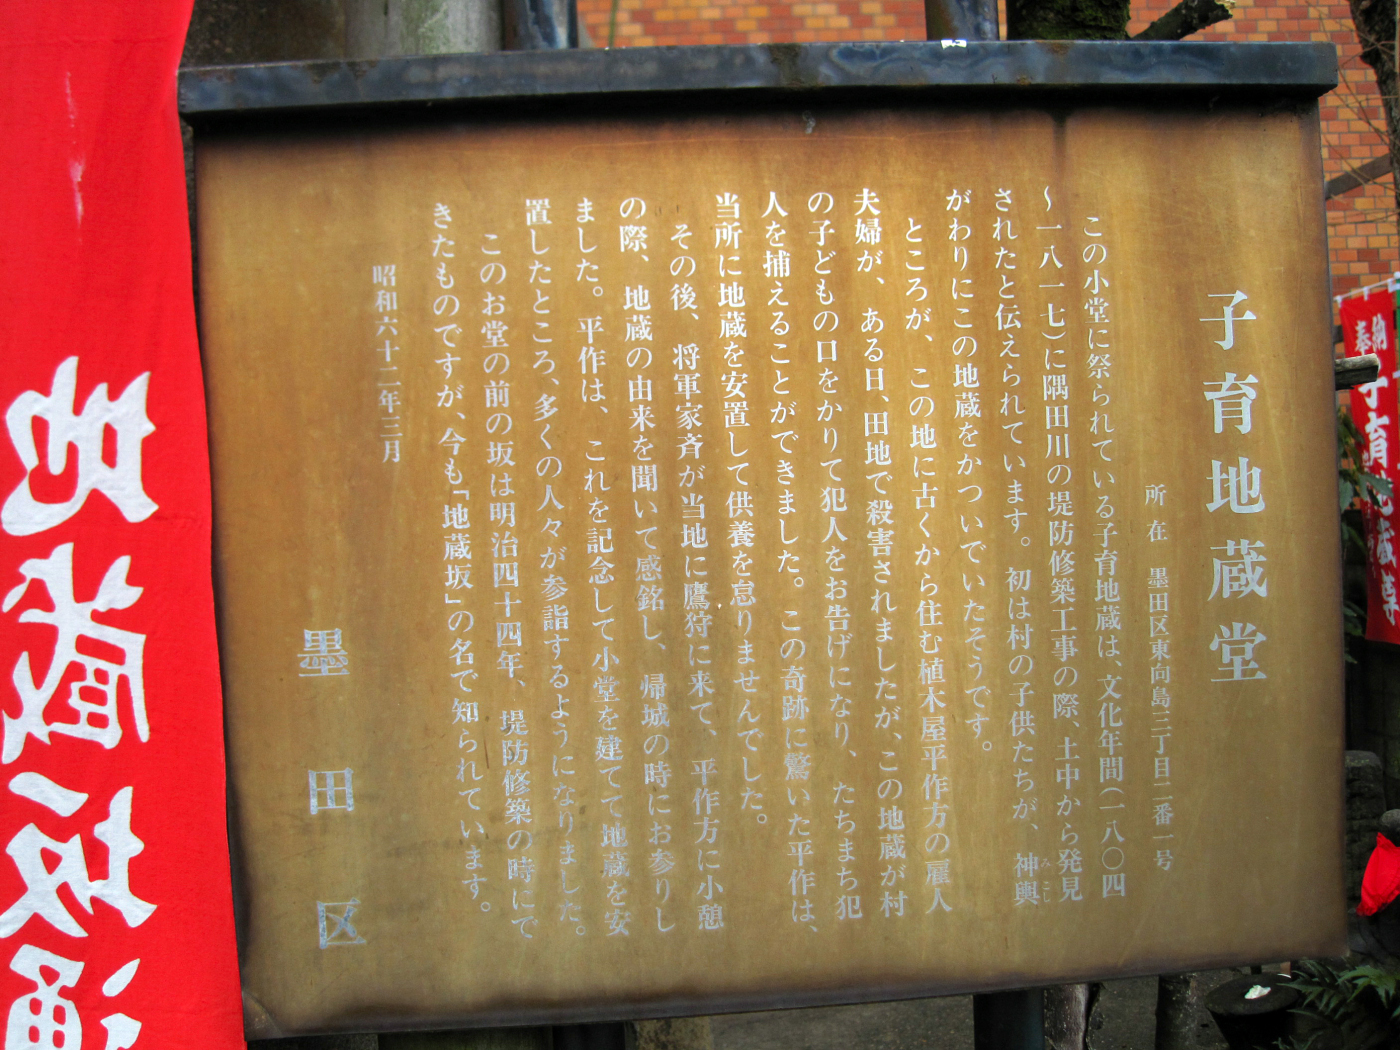 子育地蔵堂
所在　墨田区東向島三丁目二番一号
この小堂に祭られている子育地蔵は、文化年間（一八〇四
〜一八一七）に隅田川の堤防修築工事の際、土中から発見
されたと伝えられています。初は村の子供たちが、神輿
みこし
がわりにこの地蔵をかついでいたそうです。
ところが、この地に古くから住む植木屋平作方の雇人
夫婦が、ある日、田地で殺害されましたが、この地蔵が村
の子どもの口をかりて犯人をお告げになり、たちまち犯
人を捕えることができました。この奇跡に驚いた平作は、
当所に地蔵を安置して供養を怠りませんでした。
その後、将軍家斉が当地に鷹狩に来て、平作方に小憩
の際、地蔵の由来を聞いて感銘し、帰城の時にお参りし
ました。平作は、これを記念して小堂を建てて地蔵を安
置したところ、多くの人々が参詣するようになりました。
このお堂の前の坂は明治四十四年、堤防修築の時にで
きたものですが、今も「地蔵坂」の名で知られています。
昭和六十二年三月
墨田区
地蔵坂通
奉納
子育地蔵尊